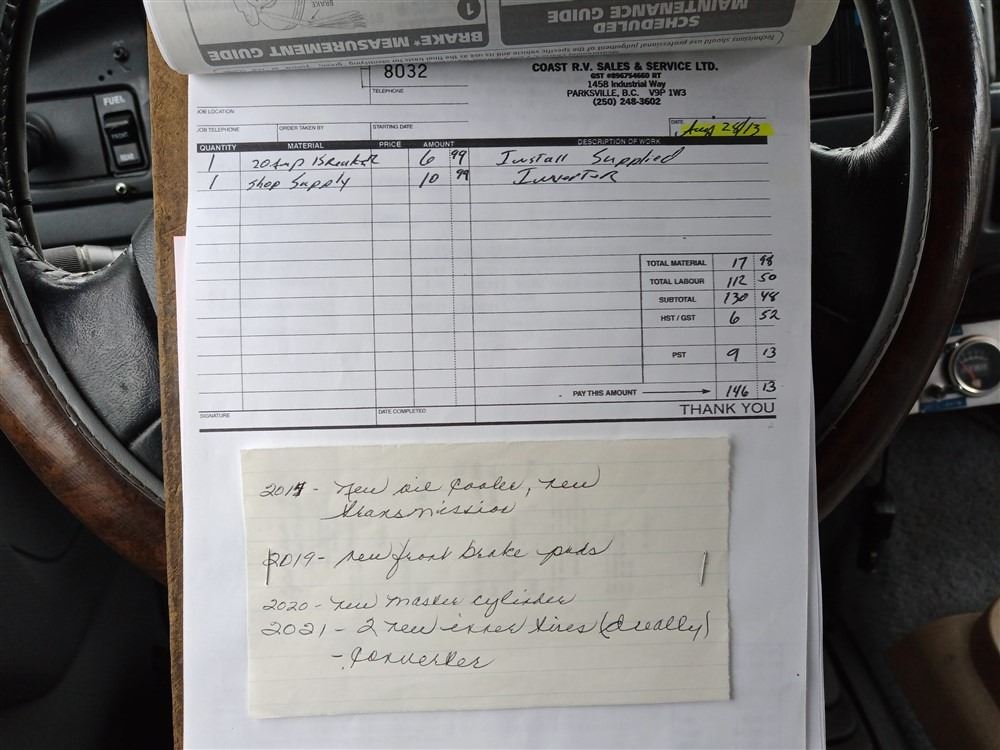 BRAKE
1
BRAKE* MEASUREMENT GUIDE
SCHEDULED
MAINTENANCE GUIDE
Technicians should use professional judgement of the specific vehicle
8032
TELEPHONE
COAST R.V. SALES & SERVICE LTD.
GST #896754660 RT
1458 Industrial Way
PARKSVILLE, B.C. V9P 1W3
(250) 248-3602
JOB LOCATION
JOB TELEPHONE ORDER TAKEN BY STARTING DATE
DATE Aug 28/13
QUANTITY MATERIAL PRICE AMOUNT DESCRIPTION OF WORK
1 20 Amp Breaker 6 99 Install Supplied
1 Shop Supply 10 99 Inverter
TOTAL MATERIAL 17 98
TOTAL LABOUR 112 50
SUBTOTAL 130 48
HST / GST 6 52
PST 9 13
PAY THIS AMOUNT 146 13
SIGNATURE DATE COMPLETED THANK YOU
2017 - new oil cooler, new
transmission
2019 - new front brake pads
2020 - new master cylinder
2021 - 2 new inner tires (dually)
- converter
FUEL
FRONT
REAR